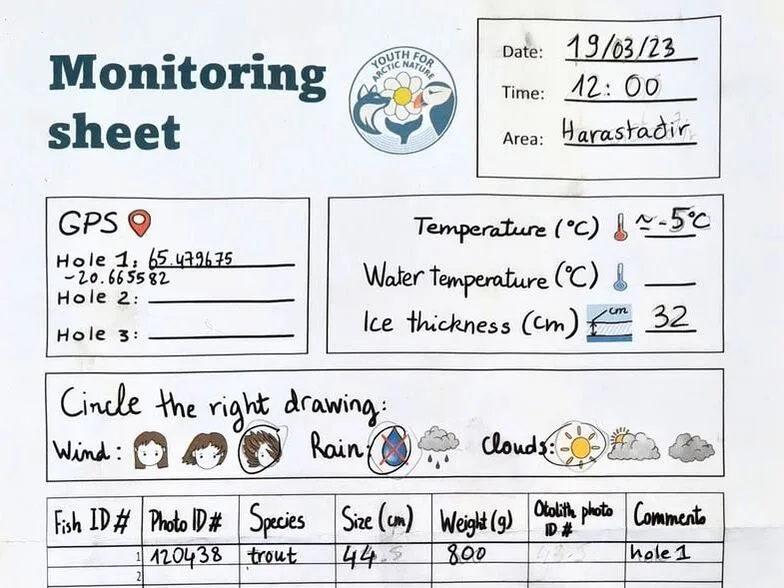 Monitoring
sheet
YOUTH FOR
ARCTIC NATURE
Date: 19/03/23
Time: 12:00
Area: Harastadir
GPS
Hole 1: 65.479675
-20.665582
Hole 2:
Hole 3:
Temperature (°C) ≈-5°C
Water temperature (°C)
Ice thickness (cm) cm 32
Circle the right drawing:
Wind: Rain: Clouds:
Fish ID# Photo ID# Species Size (cm) Weight(g) Otolith photo ID # Comments
1 120438 trout 44 800 hole 1
2